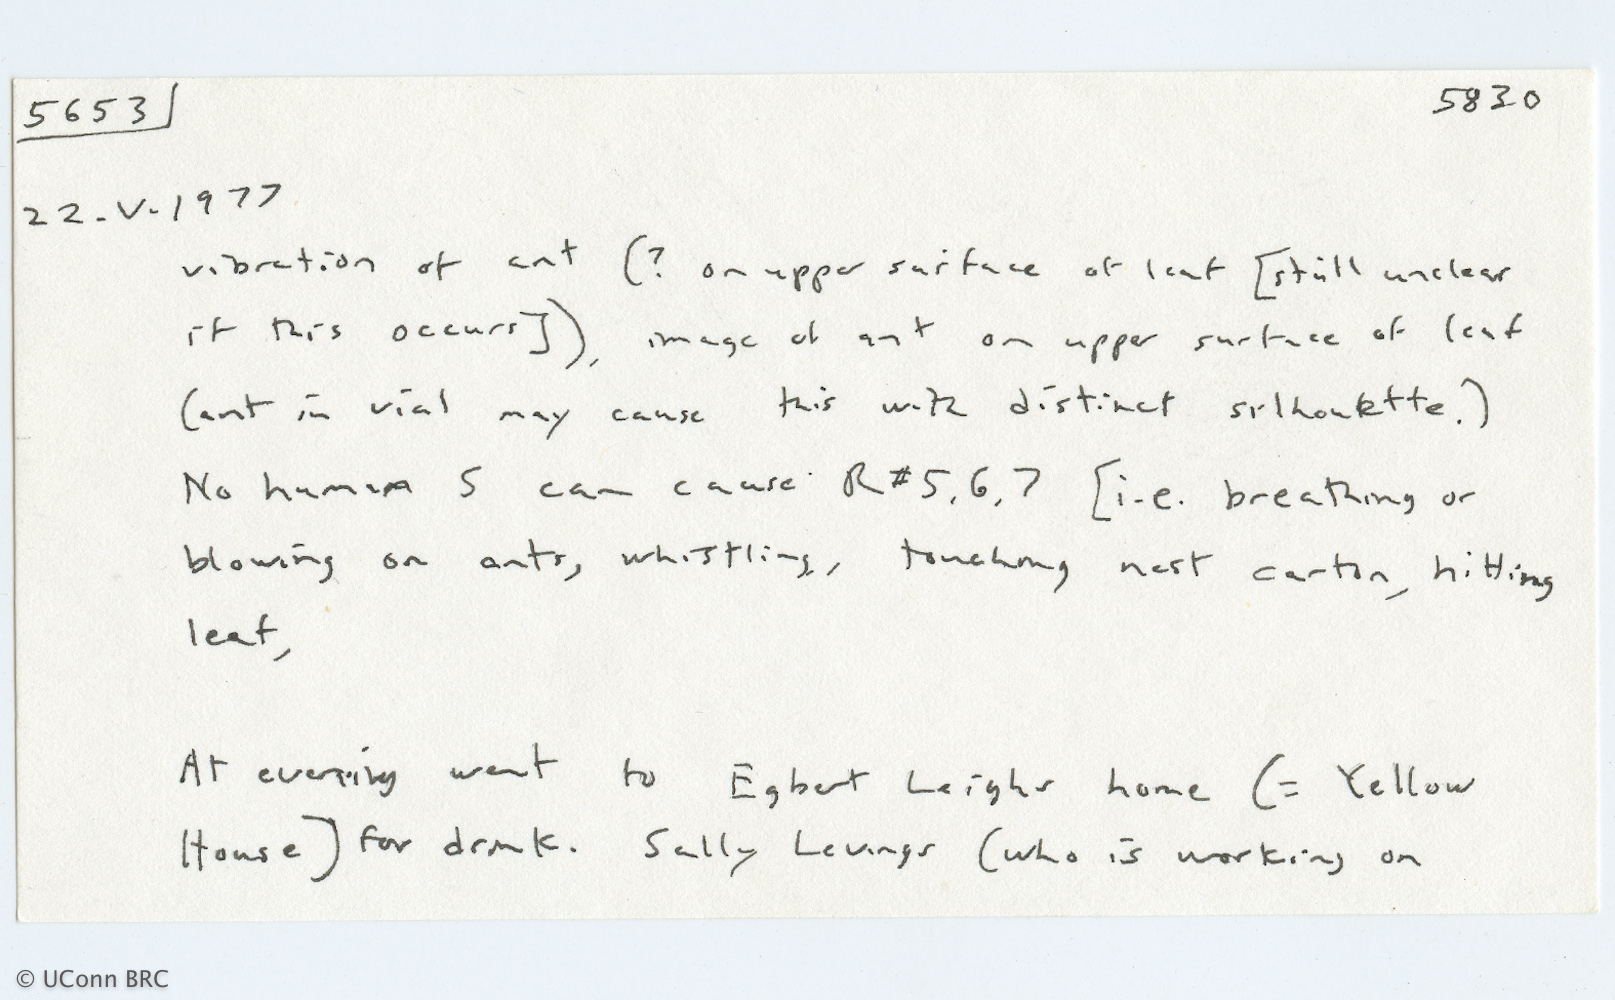 5653 5830
22-V-1977
vibration of ant (? on upper surface of leaf [still unclear
if this occurs]), image of ant on upper surface of leaf
(ant in vial may cause this with distinct silhouette.)
No human S can cause R#5,6,7 [i.e. breathing or
blowing on ants, whistling, touching nest carton, hitting
leaf,
At evening went to Egbert Leighs home (= Yellow
House) for drink. Sally Levings (who is working on
© UConn BRC